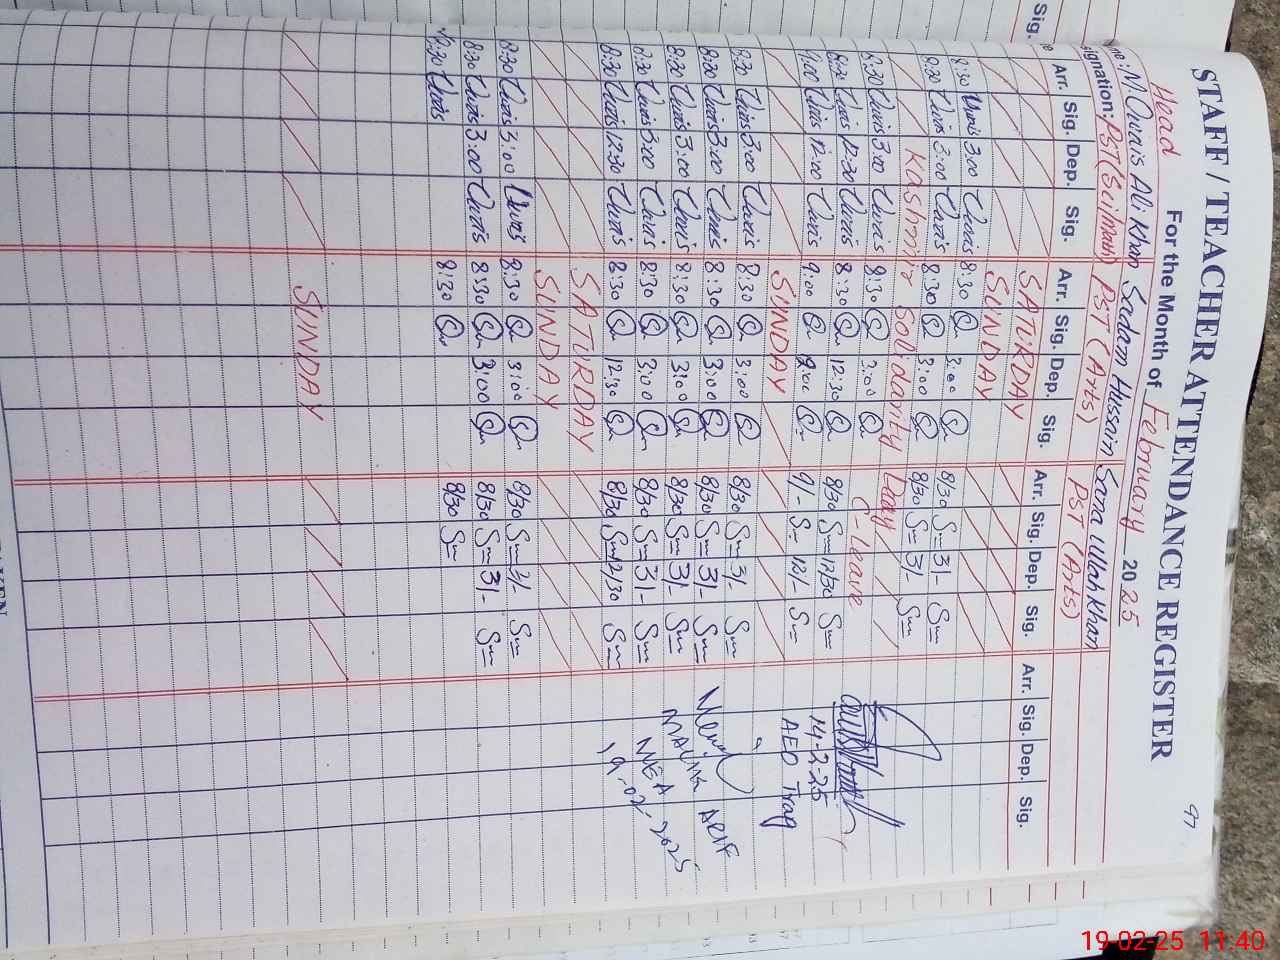 97
STAFF / TEACHER ATTENDANCE REGISTER
For the Month of February 2025
Head
M. Owais Ali Khan Sadam Hussain Sana Ullah Khan
signation: PST (Sci/math) PST (Arts) PST (Arts)
Arr. Sig. Dep. Sig. Arr. Sig. Dep. Sig. Arr. Sig. Dep. Sig. Arr. Sig. Dep. Sig.
SATURDAY
SUNDAY
8:30 Owais 3:00 Owais 8:30 3:00 8/30 3/-
8:30 Owais 3:00 Owais 8:30 3:00 8/30 3/-
Kashmir Solidarity Day
8:30 Owais 3:00 Owais 8:30 3:00 C-leave
8:30 Owais 12:30 Owais 8:30 12:30 8/30 12/30
9:00 Owais 12:00 Owais 9:00 9/- 12/-
SUNDAY
8:30 Owais 3:00 Owais 8:30 3:00 8/30 3/-
8:30 Owais 3:00 Owais 8:30 3:00 8/30 3/-
8:30 Owais 3:00 Owais 8:30 3:00 8/30 3/-
8:30 Owais 3:00 Owais 8:30 3:00 8/30 3/-
8:30 Owais 12:30 Owais 8:30 12:30 8/30 12/30
SATURDAY
SUNDAY
8:30 Owais 3:00 Owais 8:30 3:00 8/30 3/-
8:30 Owais 3:00 Owais 8:30 3:00 8/30 3/-
8:30 Owais 8:30 8/30
SUNDAY
14-2-25
AEO Trag
MALIK ARIF
MEA
19-02-2025
Sig.
19-02-25 11:40